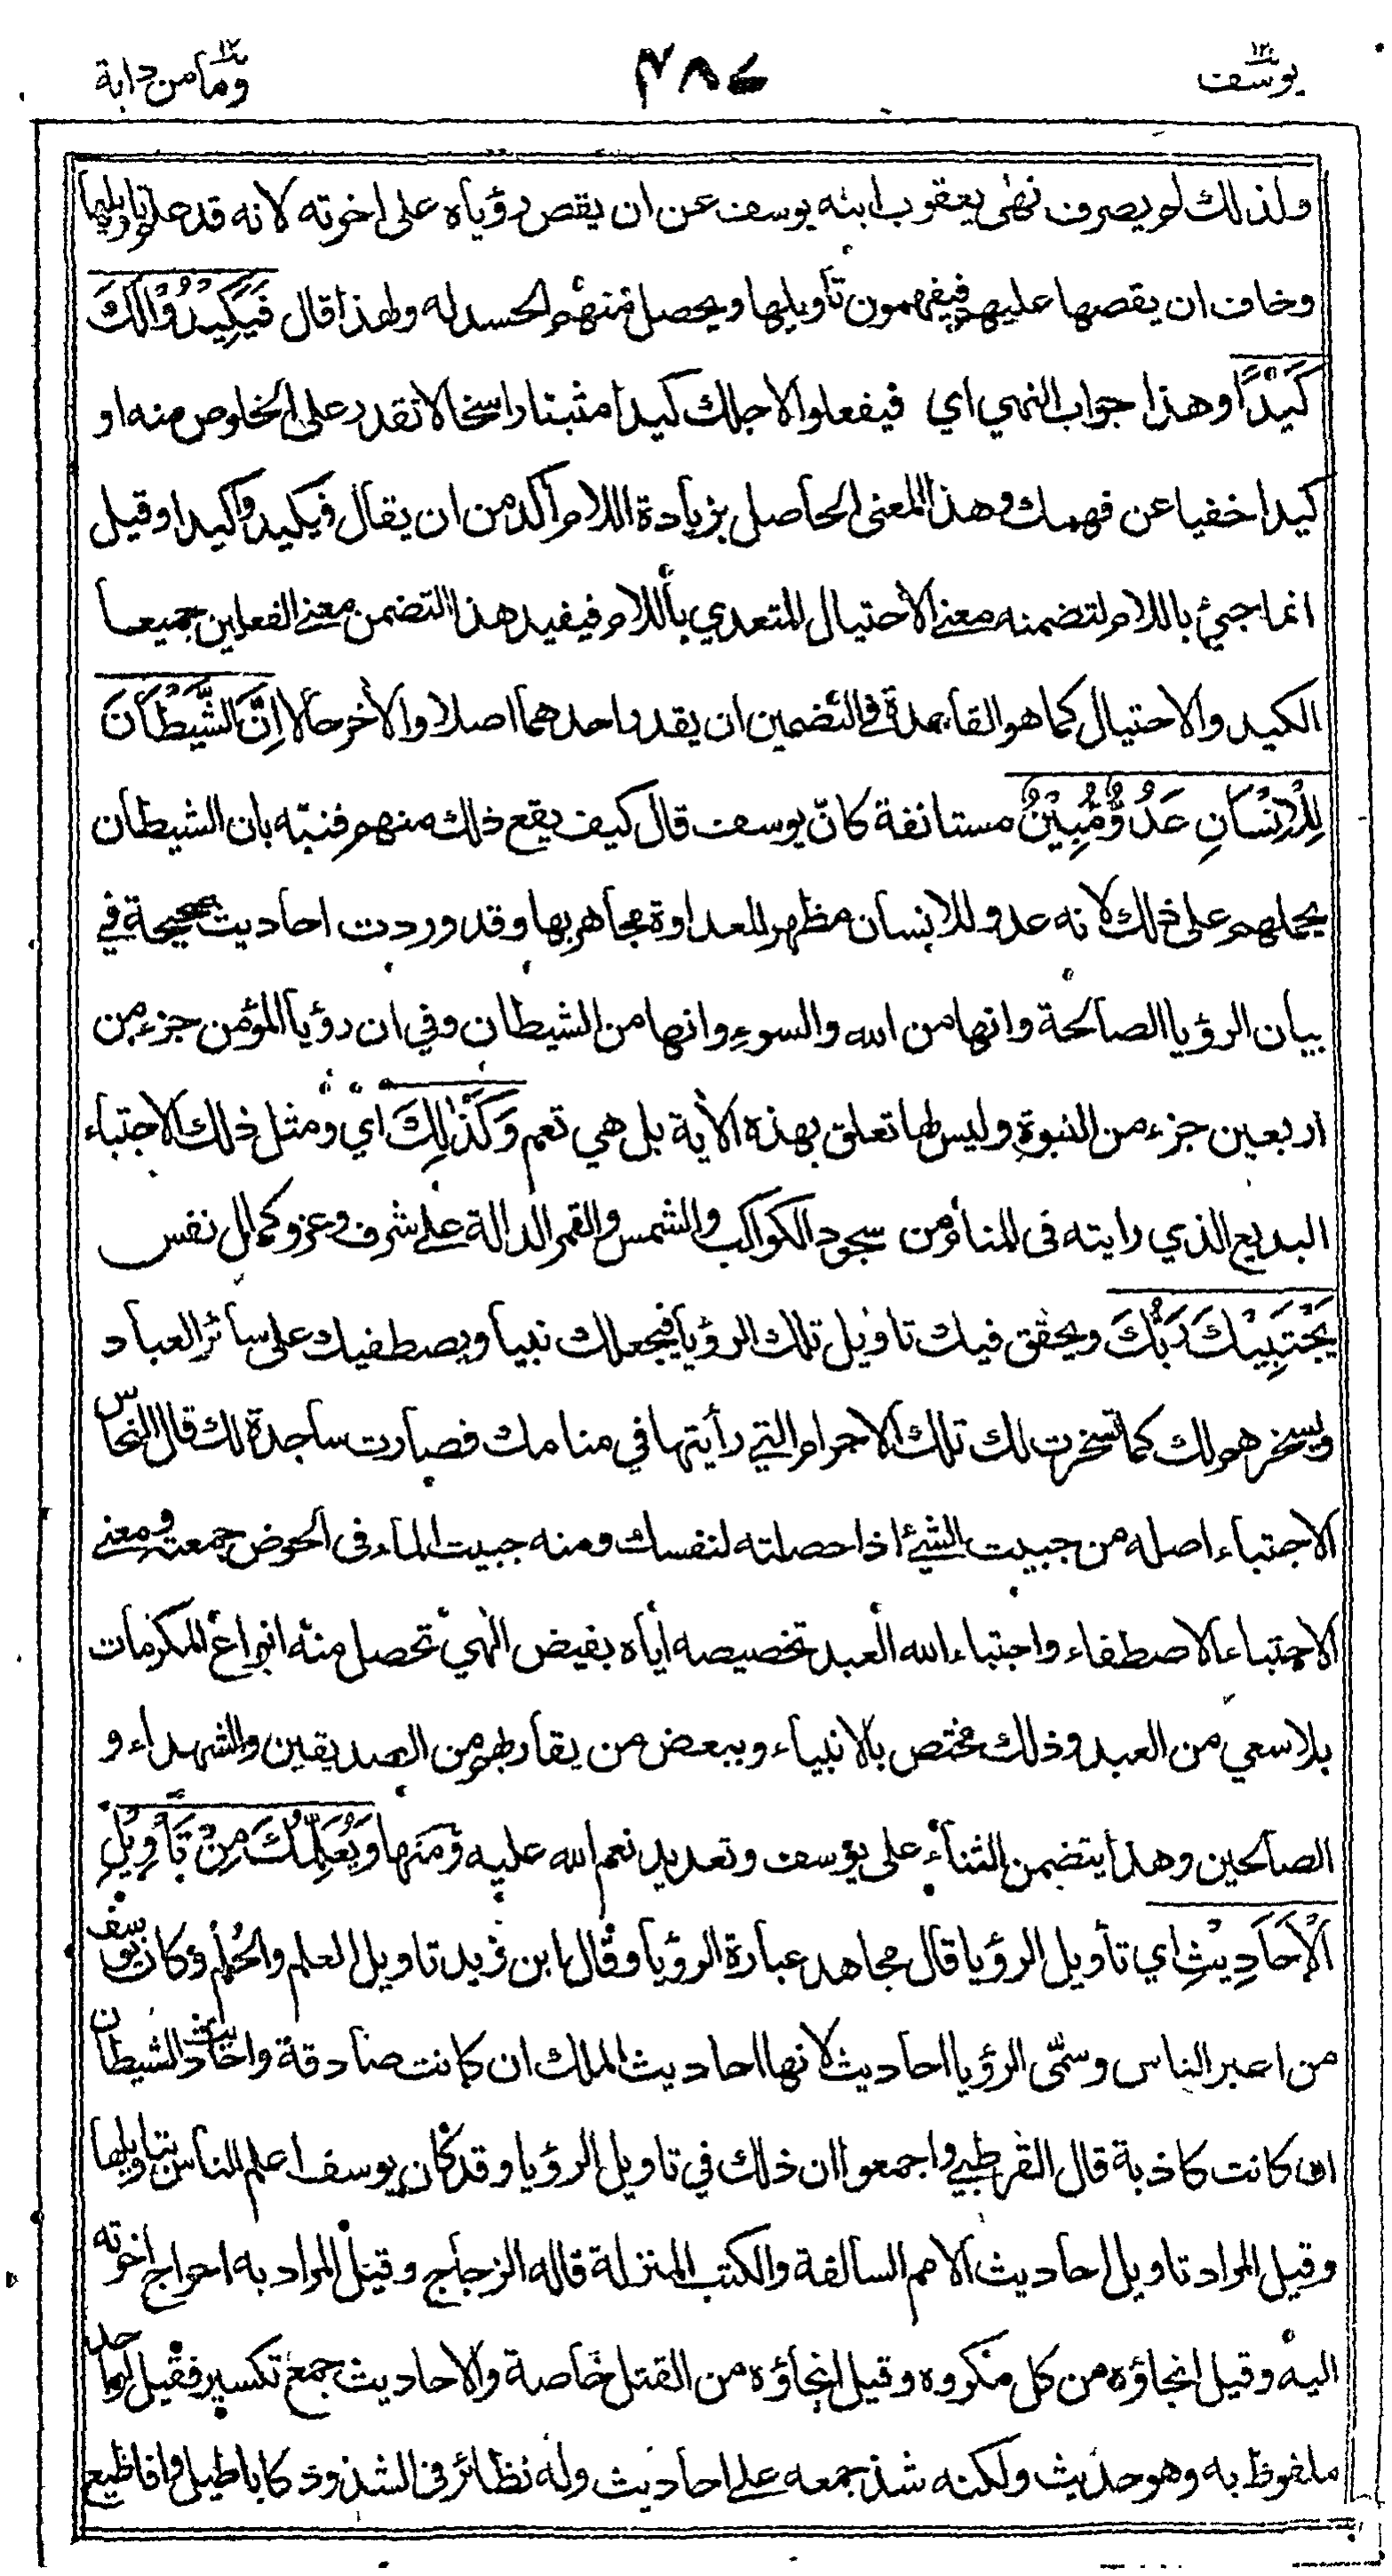 يوسف ١٢
٤٨٧
وما من دابة ١٢
ولذلك لم يصرف نهى يعقوب ابنه يوسف عن ان يقص رؤياه على اخوته لانه قد علم تاويلها
وخاف ان يقصها عليهم فيفهمون تأويلها ويحصل منهم الحسد له ولهذا قال فَيَكِيْدُوْا لَكَ
كَيْدًا وهذا جواب النهي اي فيفعلوا لاجلك كيدا مثبتا راسخا لا تقدر على الخلوص منه او
كيدا خفيا عن فهمك وهذا المعنى الحاصل بزيادة اللام أكد من ان يقال فيكيدوك كيدا وقيل
انما جيئ باللام لتضمنه معنى الاحتيال المتعدي باللام فيفيد هذا التضمن معنى الفعلين جميعا
الكيد والاحتيال كما هو القاعدة في التضمين ان يقدر احدهما اصلا والأخر حالا اِنَّ الشَّيْطٰانَ
لِلْاِنْسَانِ عَدُوٌّ مُّبِيْنٌ مستانفة كانّ يوسف قال كيف يقع ذلك منهم فنبّه بان الشيطان
يحملهم على ذلك لانه عدو للانسان مظهر للعداوة مجاهر بها وقد وردت احاديث صحيحة في
بيان الرؤيا الصالحة وانها من الله والسوء وانها من الشيطان وفي ان رؤيا المؤمن جزء من
اربعين جزء من النبوة وليس لها تعلق بهذه الأية بل هي تعم وَكَذٰلِكَ اي ومثل ذلك الاجتباء
البديع الذي رايته في المنام من سجود الكواكب والشمس والقمر الدالة على شرف وعز وكمال نفس
يَجْتَبِيْكَ رَبُّكَ ويحقق فيك تاويل تلك الرؤيا فيجعلك نبيا ويصطفيك على سائر العباد
ويسخرهم لك كما تسخرت لك تلك الاجرام التي رأيتها في منامك فصارت ساجدة لك قال النحاس
الاجتباء اصله من جبيت الشيئ اذا حصلته لنفسك ومنه جبيت الماء في الحوض جمعته ومعنى
الاجتباء الاصطفاء واجتباء الله العبد تخصيصه اياه بفيض الهي تحصل منه انواع المكرمات
بلا سعي من العبد وذلك مختص بالانبياء وببعض من يقاربهم من الصديقين والشهداء و
الصالحين وهذا يتضمن الثناء على يوسف وتعديد نعم الله عليه ومنها وَيُعَلِّمُكَ مِنْ تَأْوِيْلِ
الْاَحَادِيْثِ اي تأويل الرؤيا قال مجاهد عبارة الرؤيا وقال ابن زيد تاويل العلم والحُلم وكان يوسف
من اعبر الناس وسمّى الرؤيا احاديث لانها احاديث الملك ان كانت صادقة واحاديث الشيطان
ان كانت كاذبة قال القرطبي واجمعوا ان ذلك في تاويل الرؤيا وقد كان يوسف اعلم الناس بتاويلها
وقيل المراد تاويل احاديث الامم السالفة والكتب المنزلة قاله الزجاج وقيل المراد به احواج اخوته
اليه وقيل انجاؤه من كل مكروه وقيل انجاؤه من القتل خاصة والاحاديث جمع تكسير فقيل لواحد
ملفوظ به وهو حديث ولكنه شذ جمعه على احاديث وله نظائر في الشذوذ كاباطيل وافاظيع